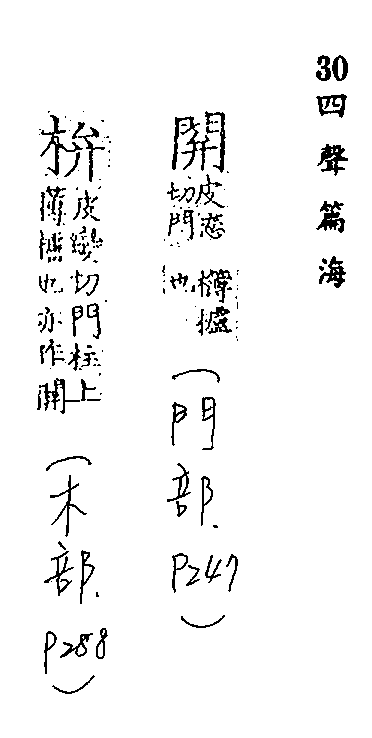 30四聲篇海
閞
皮恋
切門
欂櫨
也
(門部.P247)
皮變切門柱上
薄櫨也亦作閞
(木部.P288)